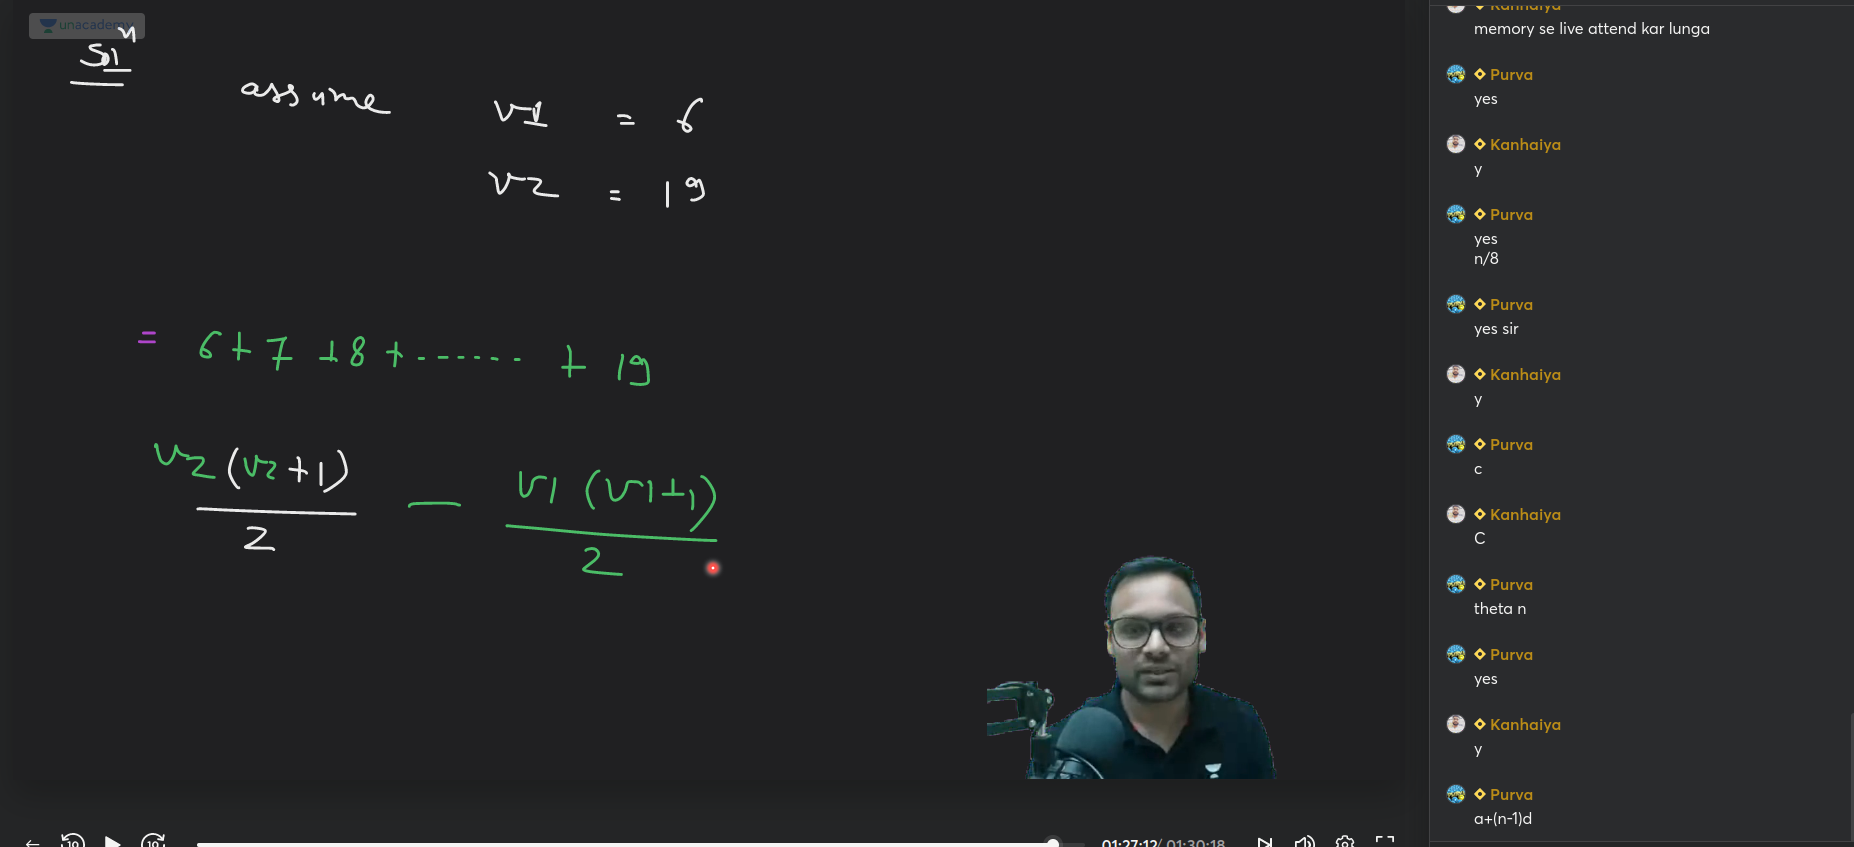 unacademy
Solⁿ
assume V1 = 6
V2 = 19
= 6 + 7 + 8 + ...... + 19
V2 (V2 + 1) / 2 - V1 (V1 + 1) / 2
Kanhaiya
memory se live attend kar lunga
Purva
yes
Kanhaiya
y
Purva
yes
n/8
Purva
yes sir
Kanhaiya
y
Purva
c
Kanhaiya
C
Purva
theta n
Purva
yes
Kanhaiya
y
Purva
a+(n-1)d
10
10
01:27:12/ 01:30:18